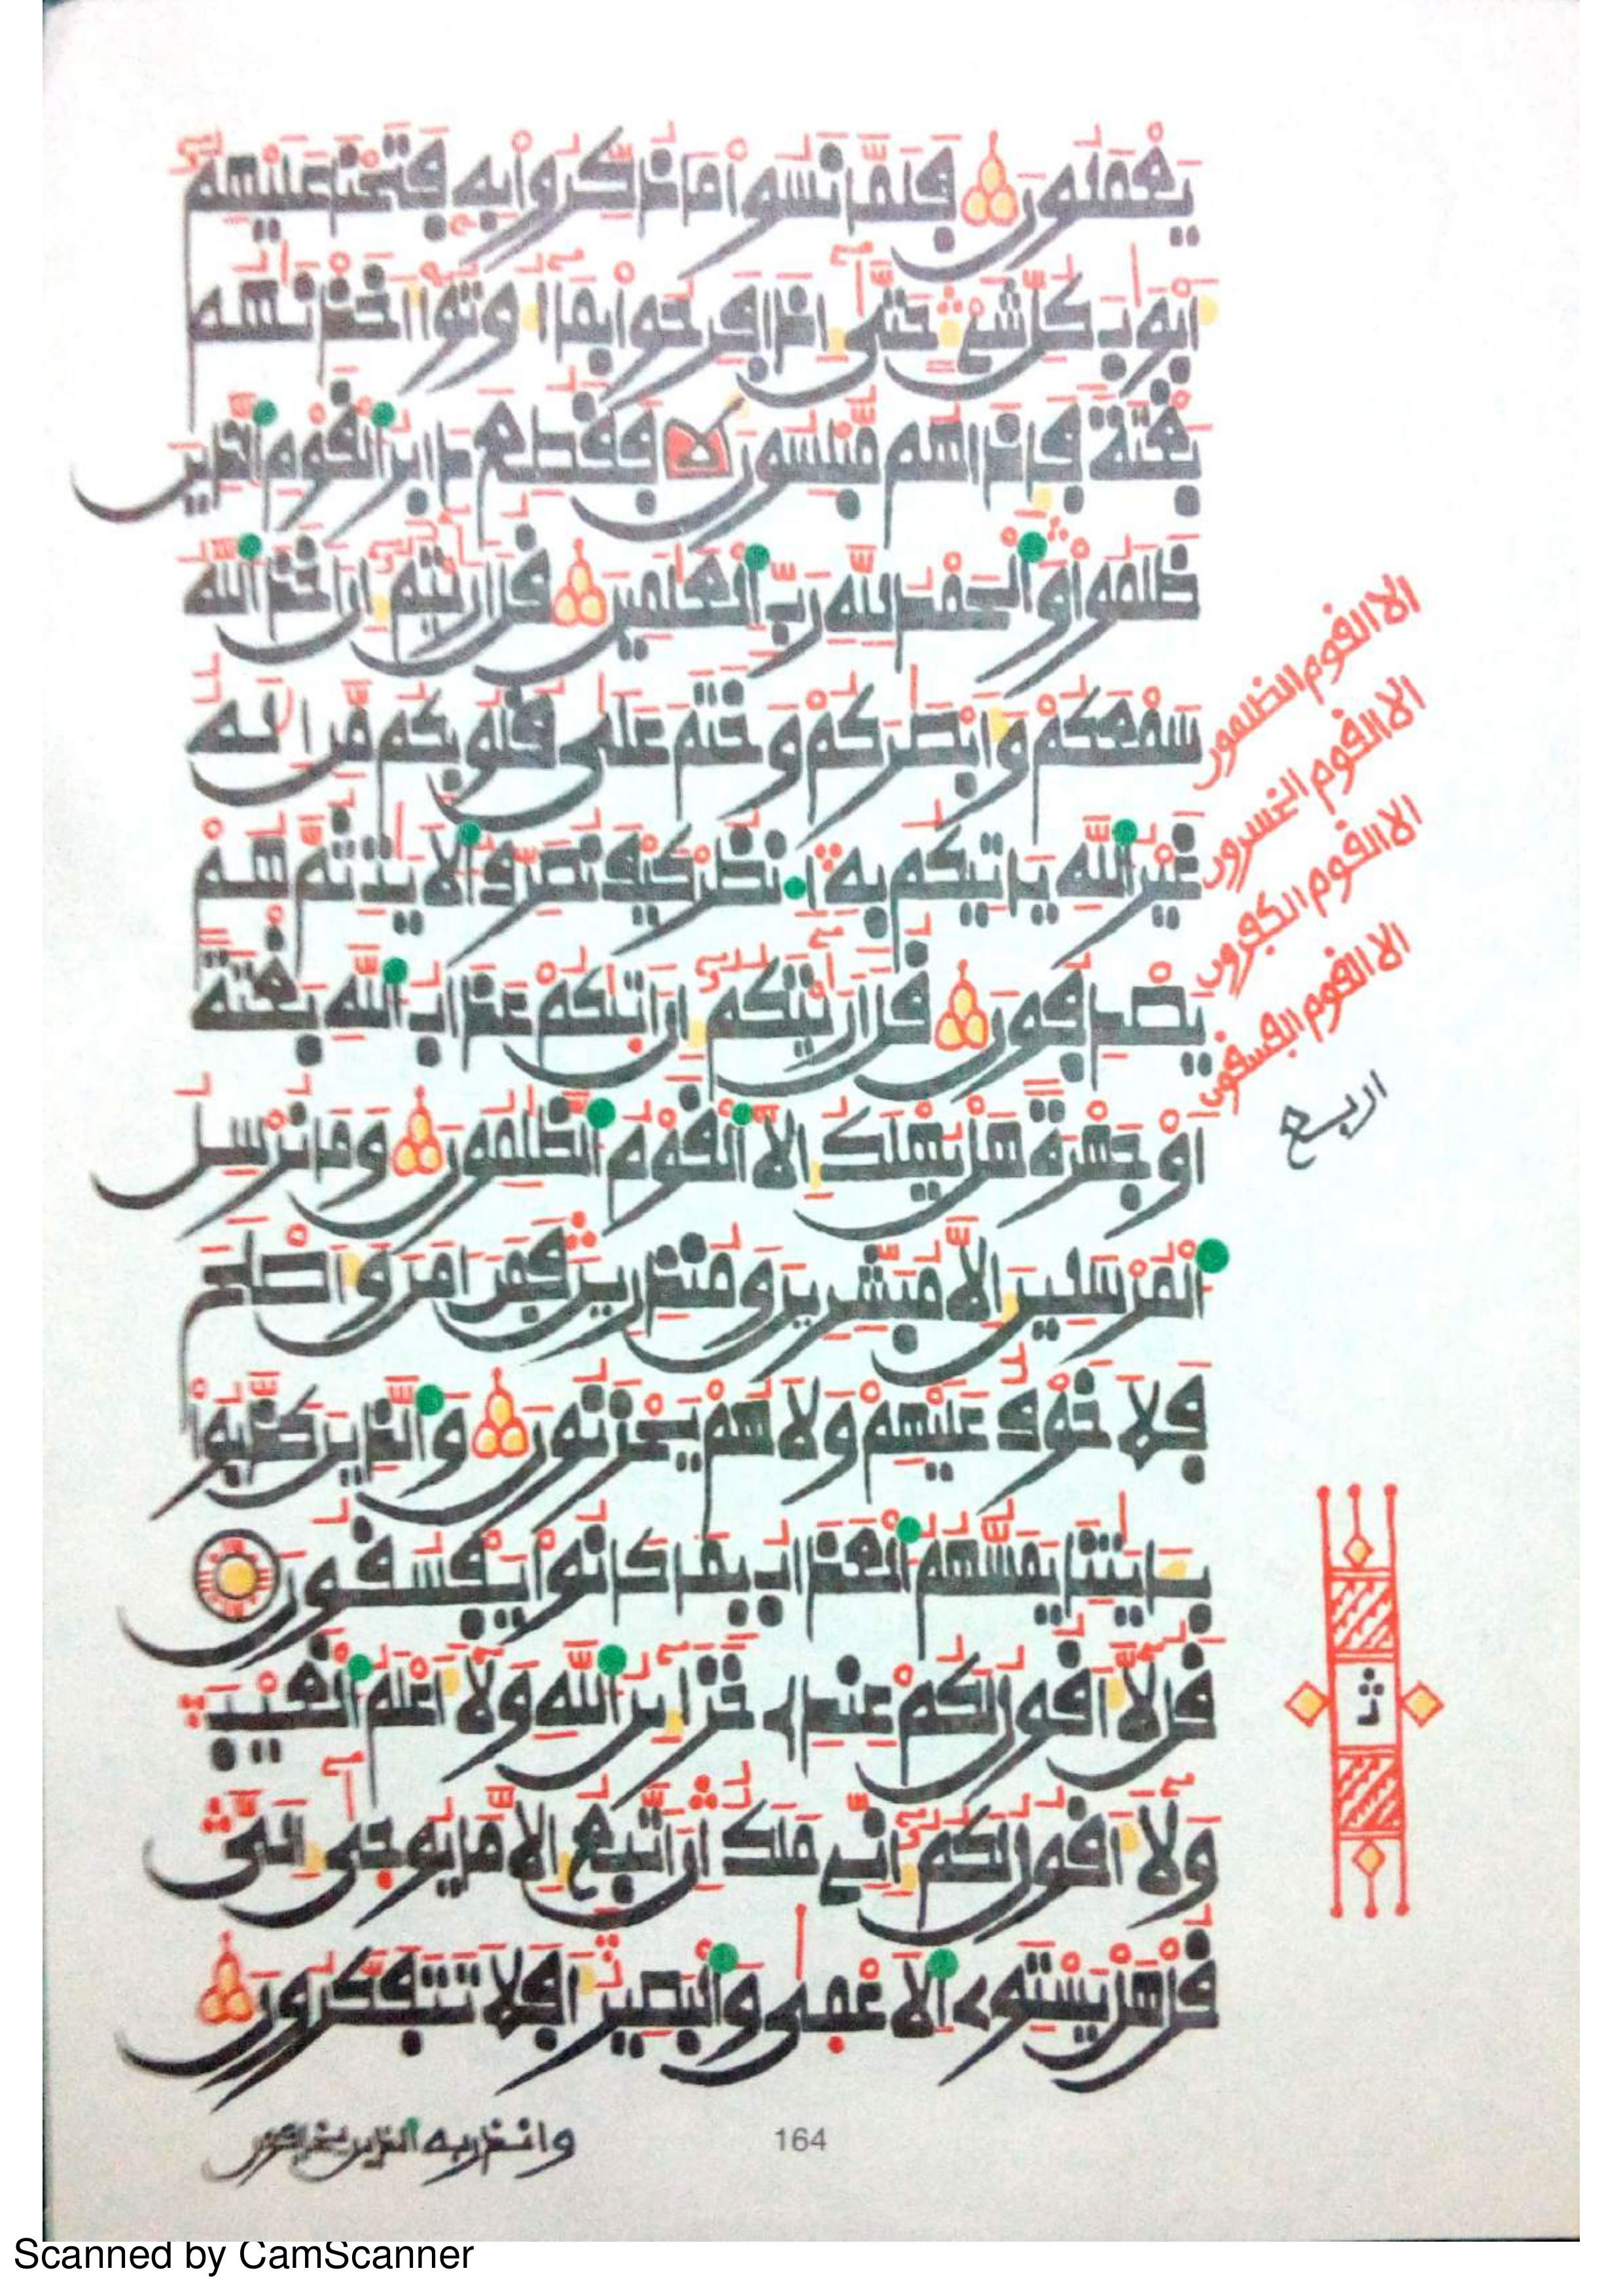 يَعْمَلُونَ فَلَمَّا نَسُواْ مَا ذُكِّرُواْ بِهِ فَتَحْنَا عَلَيْهِمُ
أَبْوَٰبَ كُلِّ شَيْءٍ حَتَّىٰ إِذَا فَرِحُواْ بِمَا أُوتُواْ أَخَذْنَٰهُم
بَغْتَةً فَإِذَا هُم مُّبْلِسُونَ فَقُطِعَ دَابِرُ الْقَوْمِ الَّذِينَ
ظَلَمُواْ وَالْحَمْدُ لِلَّهِ رَبِّ الْعَٰلَمِينَ قُلَ أَرَٰيْتُمُ إِنَ أَخَذَ اللَّهُ
سَمْعَكُمْ وَأَبْصَٰرَكُمْ وَخَتَمَ عَلَىٰ قُلُوبِكُم مَّنِ الَٰهٌ
غَيْرُ اللَّهِ يَاتِيكُم بِهِ انظُرْ كَيْفَ نُصَرِّفُ الَايَٰتِ ثُمَّ هُمْ
يَصْدِفُونَ قُلَ أَرَٰيْتَكُمُ إِنَ أَتَٰكُمْ عَذَابُ اللَّهِ بَغْتَةً
أَوْ جَهْرَةً هَلْ يُهْلَكُ إِلَّا الْقَوْمُ الظَّٰلِمُونَ وَمَا نُرْسِلُ
الْمُرْسَلِينَ إِلَّا مُبَشِّرِينَ وَمُنذِرِينَ فَمَنَ امَنَ وَأَصْلَحَ
فَلَا خَوْفٌ عَلَيْهِمْ وَلَا هُمْ يَحْزَنُونَ وَالَّذِينَ كَذَّبُواْ
بِـَٔايَٰتِنَا يَمَسُّهُمُ الْعَذَابُ بِمَا كَانُواْ يَفْسُقُونَ
قُل لَّا أَقُولُ لَكُمْ عِندِے خَزَآئِنُ اللَّهِ وَلَا أَعْلَمُ الْغَيْبَ
وَلَا أَقُولُ لَكُمُ إِنِّے مَلَكٌ إِنَ أَتَّبِعُ إِلَّا مَا يُوحَىٰ إِلَىَّ
قُلْ هَلْ يَسْتَوِے الَاعْمَىٰ وَالْبَصِيرُ أَفَلَا تَتَفَكَّرُونَ
الا القوم الظلمون
الا القوم الخسرون
الا القوم الكفرون
الا القوم الفسقون
اربع
ثـ
وانذر به الذين يخافون
164
Scanned by CamScanner